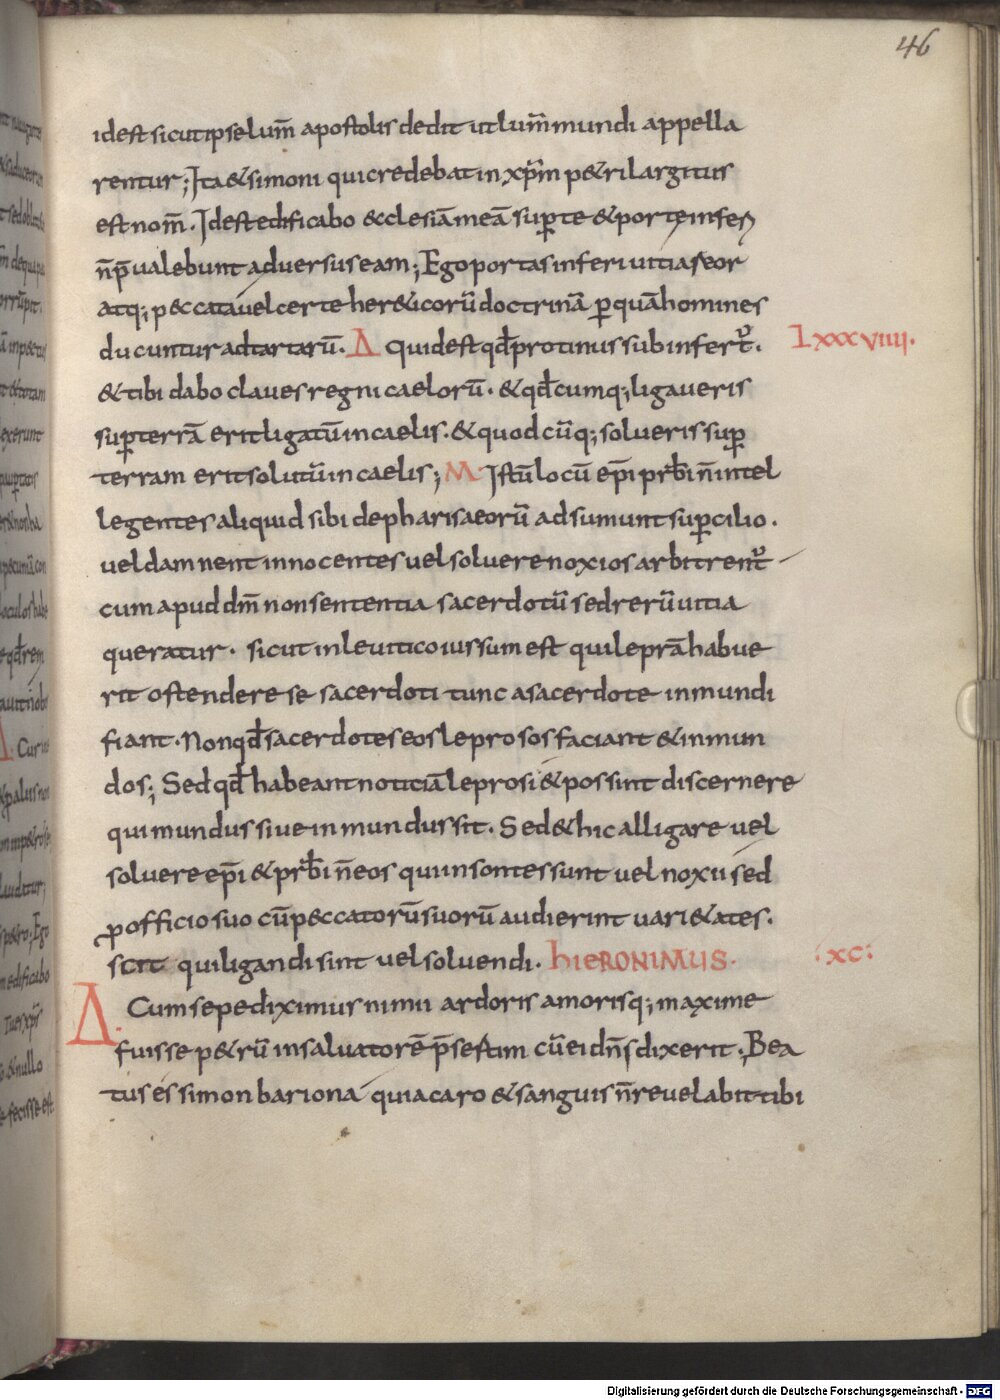 46
idest sicut ipse lum̄ apostolis dedit ut lum̄ mundi appella
rentur; Ita & simoni qui credebat in xp̄m p&ri largitus
est nom̄. Idest edificabo ecclesiā meā sup̱ te & porte inferi
n̄ p̄ualebunt aduersus eam; Ego portas inferi uitia reor
atq; p&ccata uel certe her&icorū doctrinā p̱ quā homines
ducuntur ad tartarū. Δ Quid est qđ protinus subinfert᷒.
Lxxxviiii.
& tibi dabo claues regni caelorū. & qđcumq; ligaueris
sup̱ terrā erit ligatū in caelis. & quodcūq; solueris sup̱
terram erit solutū in caelis; M Istū locū ep̄i prb̄i n̄ intel
legentes aliquid sibi de pharisaeorū adsumunt sup̱cilio.
uel damnent innocentes uel soluere noxios arbitrent᷒
cum apud dm̄ non sententia sacerdotū sed rerū uitia
queratur. sicut in leuitico iussum est qui leprā habue
rit ostendere se sacerdoti tunc a sacerdote inmundi
fiant. Non qđ sacerdotes eos leprosos faciant & inmun
dos; Sed qđ habeant noticiā leprosi & possint discernere
qui mundus siue inmundus sit. Sed & hic alligare uel
soluere ep̄i & prb̄i n̄ eos qui insontes sunt uel noxii sed
ꝓ officio suo cū p&ccatorū suorū audierint uari&ates.
scit qui ligandi sint uel soluendi. hIERONIMUS.
:xc:
Δ. Cum sepe diximus nimii ardoris amorisq; maxime
fuisse p&rū in saluatorē p̄sertim cū ei dn̄s dixerit. Bea
tus es simon bariona quia caro & sanguis n̄ reuelabit tibi
Digitalisierung gefördert durch die Deutsche Forschungsgemeinschaft - DFG